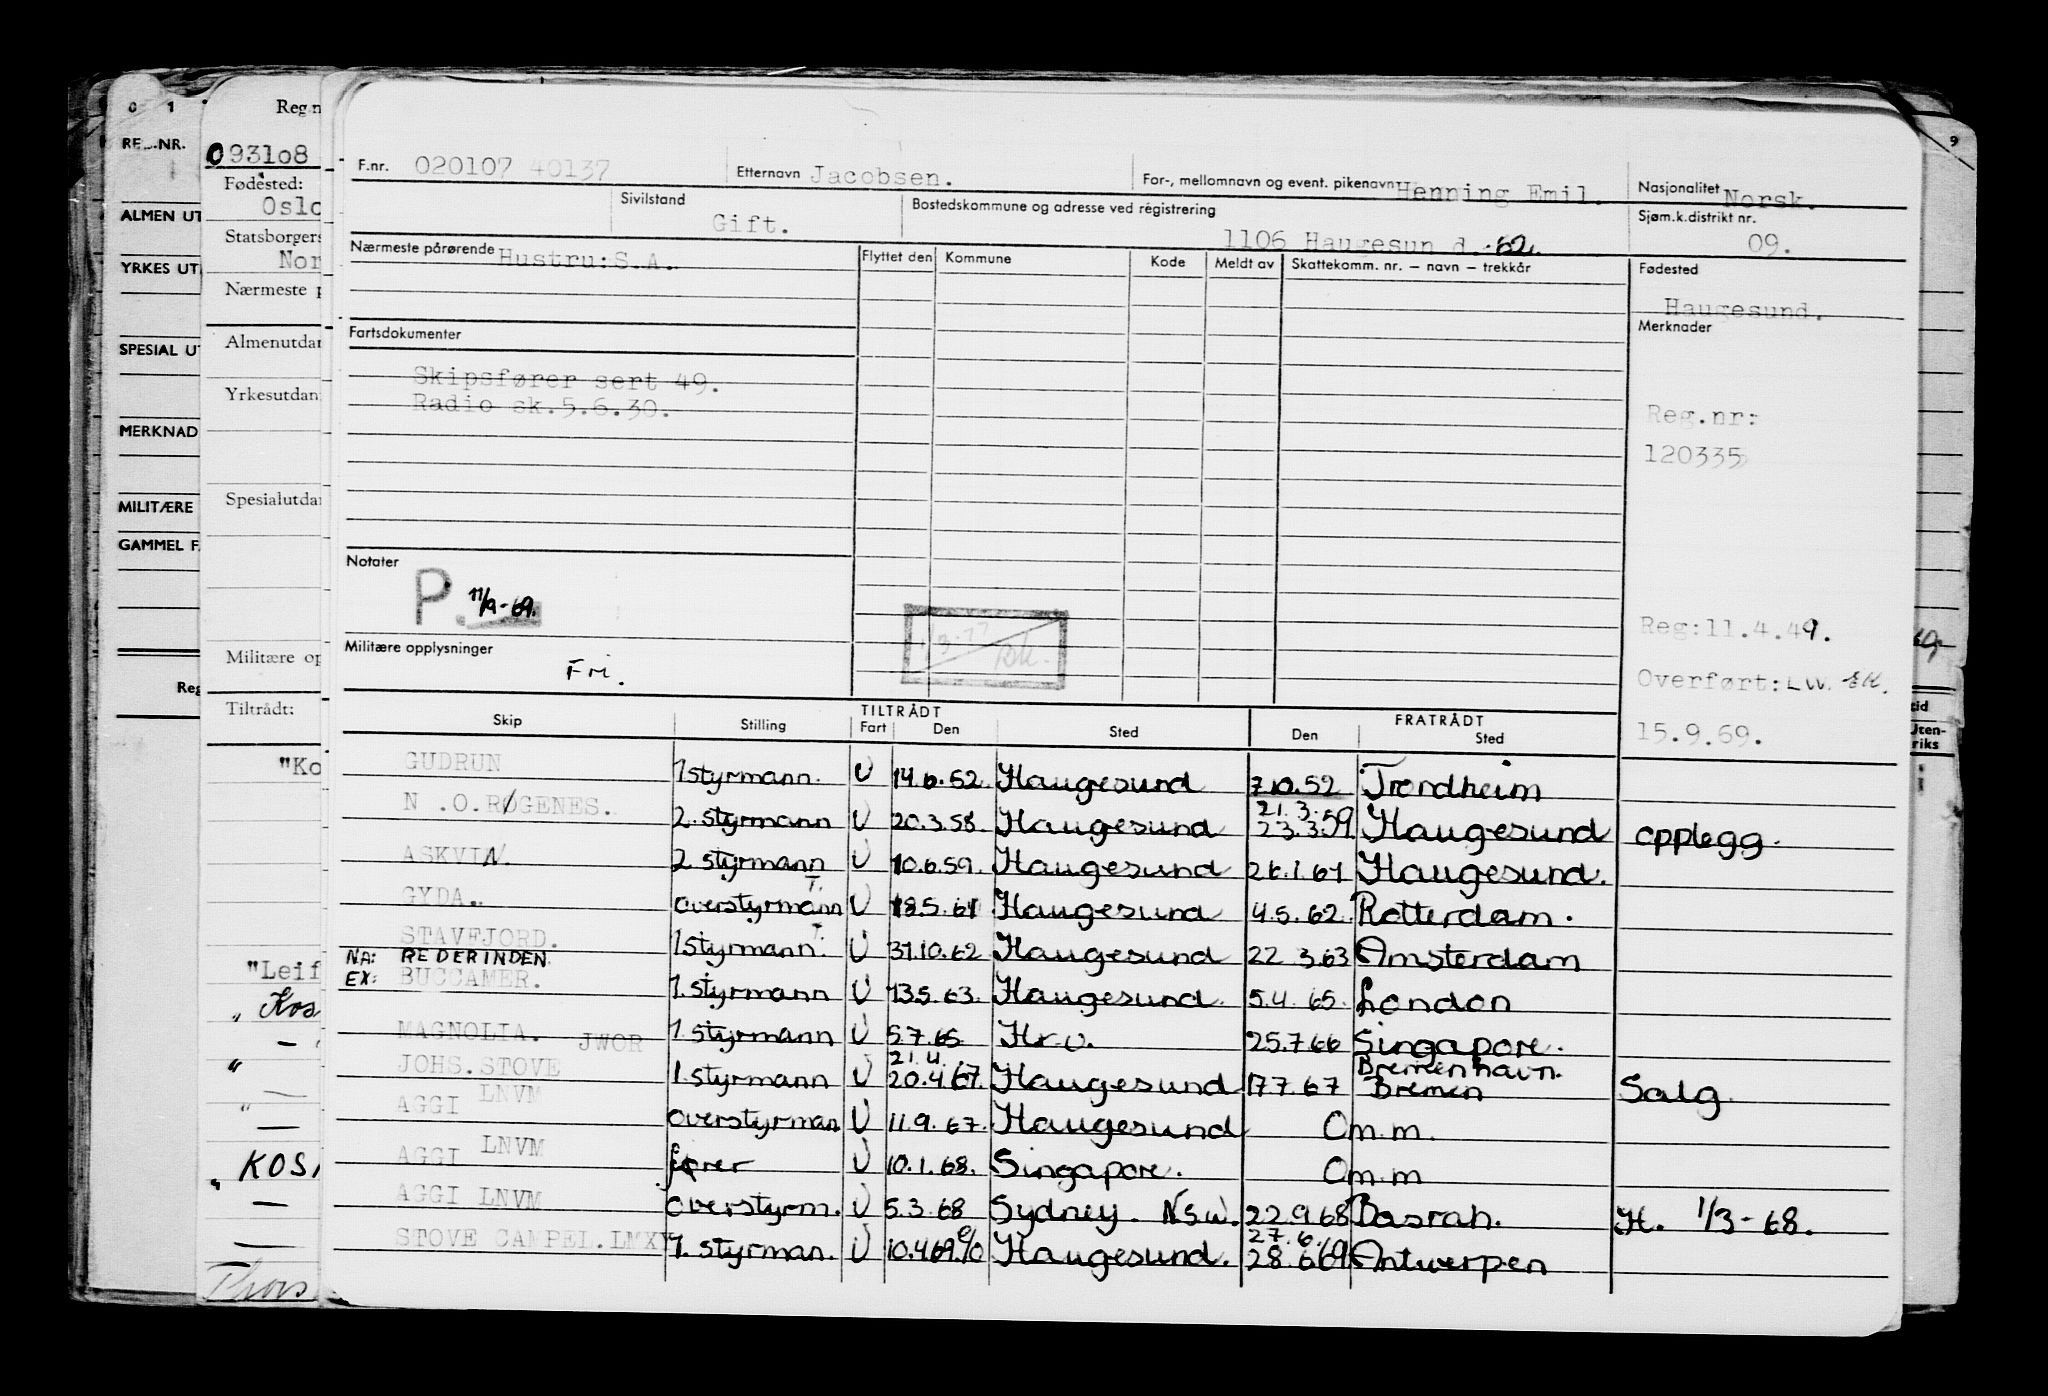 0 1
RE NR.
ALMEN UT
YRKES UT
SPESIAL UT
MERKNAD
MILITÆRE
GAMMEL F
Reg
Reg.n
093108
Fødested:
Oslo
Statsborgers
Nor
Nærmeste p
Almenutdan
Yrkesutdan
Spesialutdan
Militære op
Tiltrådt:
"Ko
"Leif
„ Kos
KOSI
Thors
9
tid
Uten-
riks
F.nr. 020107 40137 Etternavn Jacobsen. For-, mellomnavn og event. pikenavn Henning Emil. Nasjonalitet Norsk.
Sivilstand Gift. Bostedskommune og adresse ved registrering 1106 Haugesund. 62. Sjøm.k.distrikt nr. 09.
Nærmeste pårørende Hustru: S.A. Flyttet den Kommune Kode Meldt av Skattekomm. nr. – navn – trekkår Fødested
Haugesund.
Fartsdokumenter Merknader
Skipsfører sert 49.
Radio sk.5.6.30.
Reg.nr:
120335
Notater
P. 11/9-69.
Militære opplysninger
Fri.
Reg:11.4.49.
Overført: LW. EK.
15.9.69.
TILTRÅDT FRATRÅDT
Skip Stilling Fart Den Sted Den Sted
GUDRUN 1styrmann. U 14.6.52. Haugesund 7.10.52 Trondheim
N .O.RØGENES. 2. styrmann U 20.3.58. Haugesund 21.3.59 23.3.59 Haugesund opplegg.
ASKVIN. 2 styrmann U 10.6.59. Haugesund 26.1.61 Haugesund.
GYDA. overstyrmann T. U 18.5.61 Haugesund 4.5.62. Rotterdam.
STAVFJORD. 1styrmann T. U 31.10.62 Haugesund 22 3.63 Amsterdam
NA: REDERINDEN
EX: BUCCAMER. 1. styrmann U 13.5.63. Haugesund. 5.4.65. London
MAGNOLIA. JWOR 1. styrmann U 5.7.65 Hr.v. 25.7.66 Singapore.
JOHS.STOVE 1. styrmann U 21.4. 20.4.67. Haugesund 17.7.67 Bremenhavn. Bremen Salg.
AGGI LNVM overstyrman U 11.9.67. Haugesund Om.m.
AGGI LNVM fører U 10.1.68. Singapore. Om.m
AGGI LNVM overstyrm. U 5.3.68 Sydney. N.S.W. 22.9.68 Basrah. H. 1/3-68.
STOVE CAMPEL.LMXY 1. styrman. U 10.4.69. Haugesund. 27.6. 28.6.69 Antwerpen